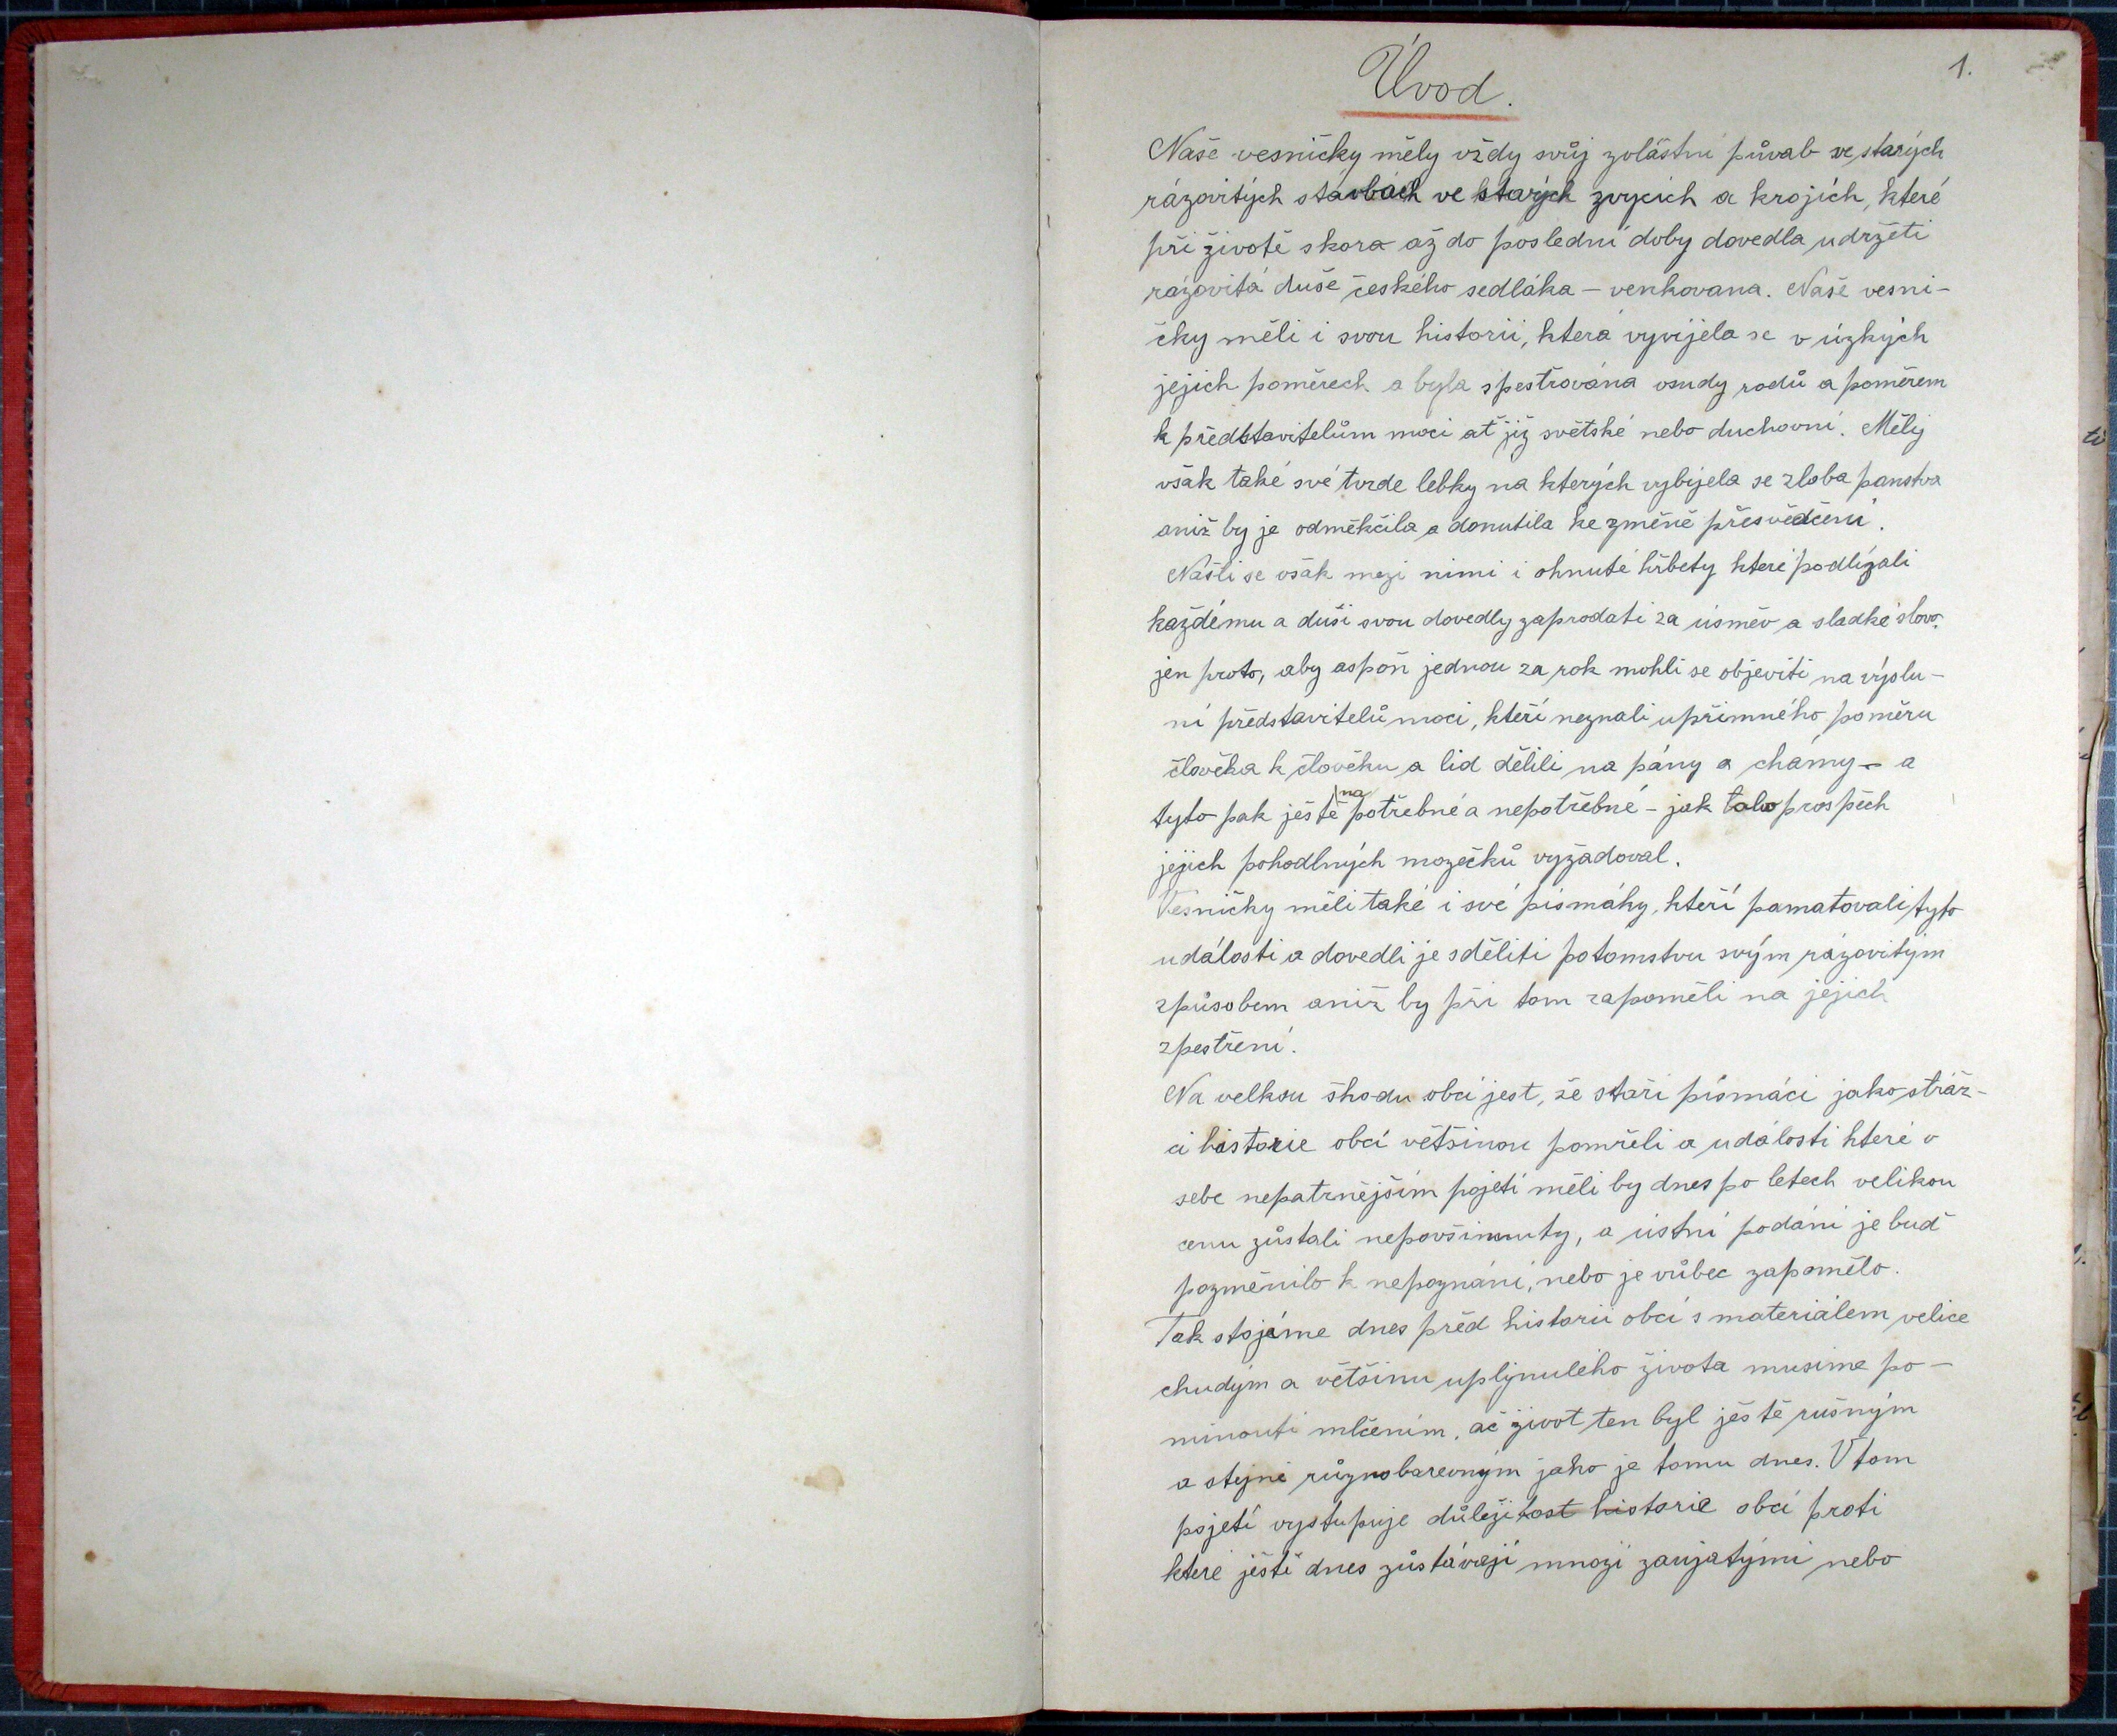 1.
Úvod.
Naše vesničky měly vždy svůj zvláštní půvab ve starých
rázovitých stavbách ve starých zvycích a krojích, které
při životě skora až do poslední doby dovedla udržeti
rázovitá duše českého sedláka – venkovana. Naše vesni-
čky měli i svou historii, která vyvíjela se v úzkých
jejich poměrech a byla spestřována osudy rodů a poměrem
k představitelům moci ať již světské nebo duchovní. Měly
však také své tvrde lebky na kterých vybíjela se zloba panstva
aniž by je odměkčila a donutila ke změně přesvědčení.
Našli se však mezi nimi i ohnuté hřbety které podlízali
každému a duši svou dovedly zaprodati za úsměv a sladké slovo.
jen proto, aby aspoň jednou za rok mohli se objeviti na výslu-
ní představitelů moci, kteří neznali upřimného poměru
člověka k člověku a lid dělili na pány a chámy – a
tyto pak ještě na potřebné a nepotřebné – jak toho prospěch
jejich pohodlných mozečků vyžadoval.
Vesničky měli také i své písmáky, kteří pamatovali tyto
události a dovedli je sděliti potomstvu svým rázovitým
způsobem aniž by při tom zapoměli na jejich
zpestření.
Na velkou škodu obcí jest, že staří písmáci jako stráž-
ci historie obcí většinou pomřeli a události které v
sebe nepatrnějším pojetí měli by dnes po letech velikou
cenu zůstali nepovšimnuty, a ústní podání je buď
pozměnilo k nepoznání, nebo je vůbec zapomělo.
Tak stojéme dnes před historii obcí s materiálem velice
chudým a většinu uplynulého života musíme po-
minouti mlčením, ač život ten byl ještě rušným
a stejně různobarevným jako je tomu dnes. V tom
pojetí vystupuje důležitost historie obcí proti
které ještě dnes zůstávají mnozí zaujatými nebo